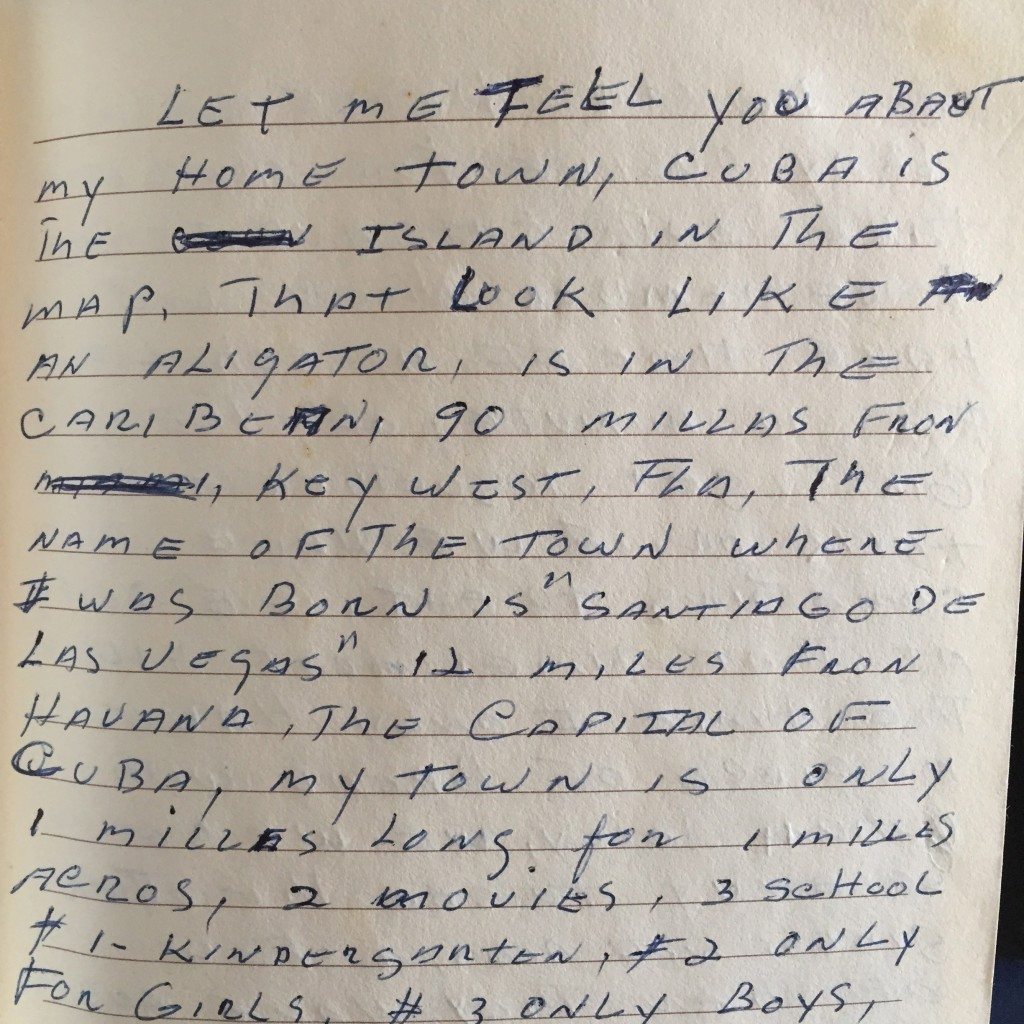 LET ME TEEL YOU ABAUT
MY HOME TOWN, CUBA IS
THE ISLAND IN THE
MAP, THAT LOOK LIKE
AN ALIGATOR, IS IN THE
CARIBEAN, 90 MILLAS FRON
, KEY WEST, FLA, THE
NAME OF THE TOWN WHERE
I WAS BORN IS "SANTIAGO DE
LAS VEGAS" 12 MILES FRON
HAVANA, THE CAPITAL OF
CUBA, MY TOWN IS ONLY
1 MILLES LONG. for 1 MILLES
ACROS, 2 MOVIES, 3 SCHOOL
# 1- KINDERGARTEN, # 2 ONLY
FOR GIRLS, # 3 ONLY BOYS,